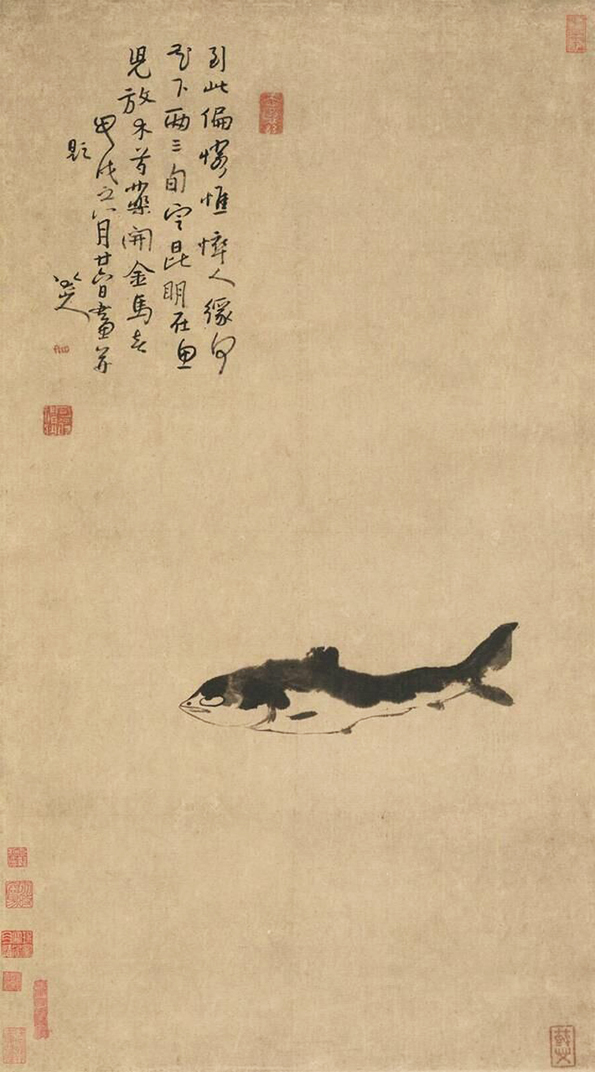 到此偏憐憔悴人緣何
花下兩三旬定昆明在魚
兒放木芍藥開金馬春
甲戌之六月廿六日畫并
題
八大山人